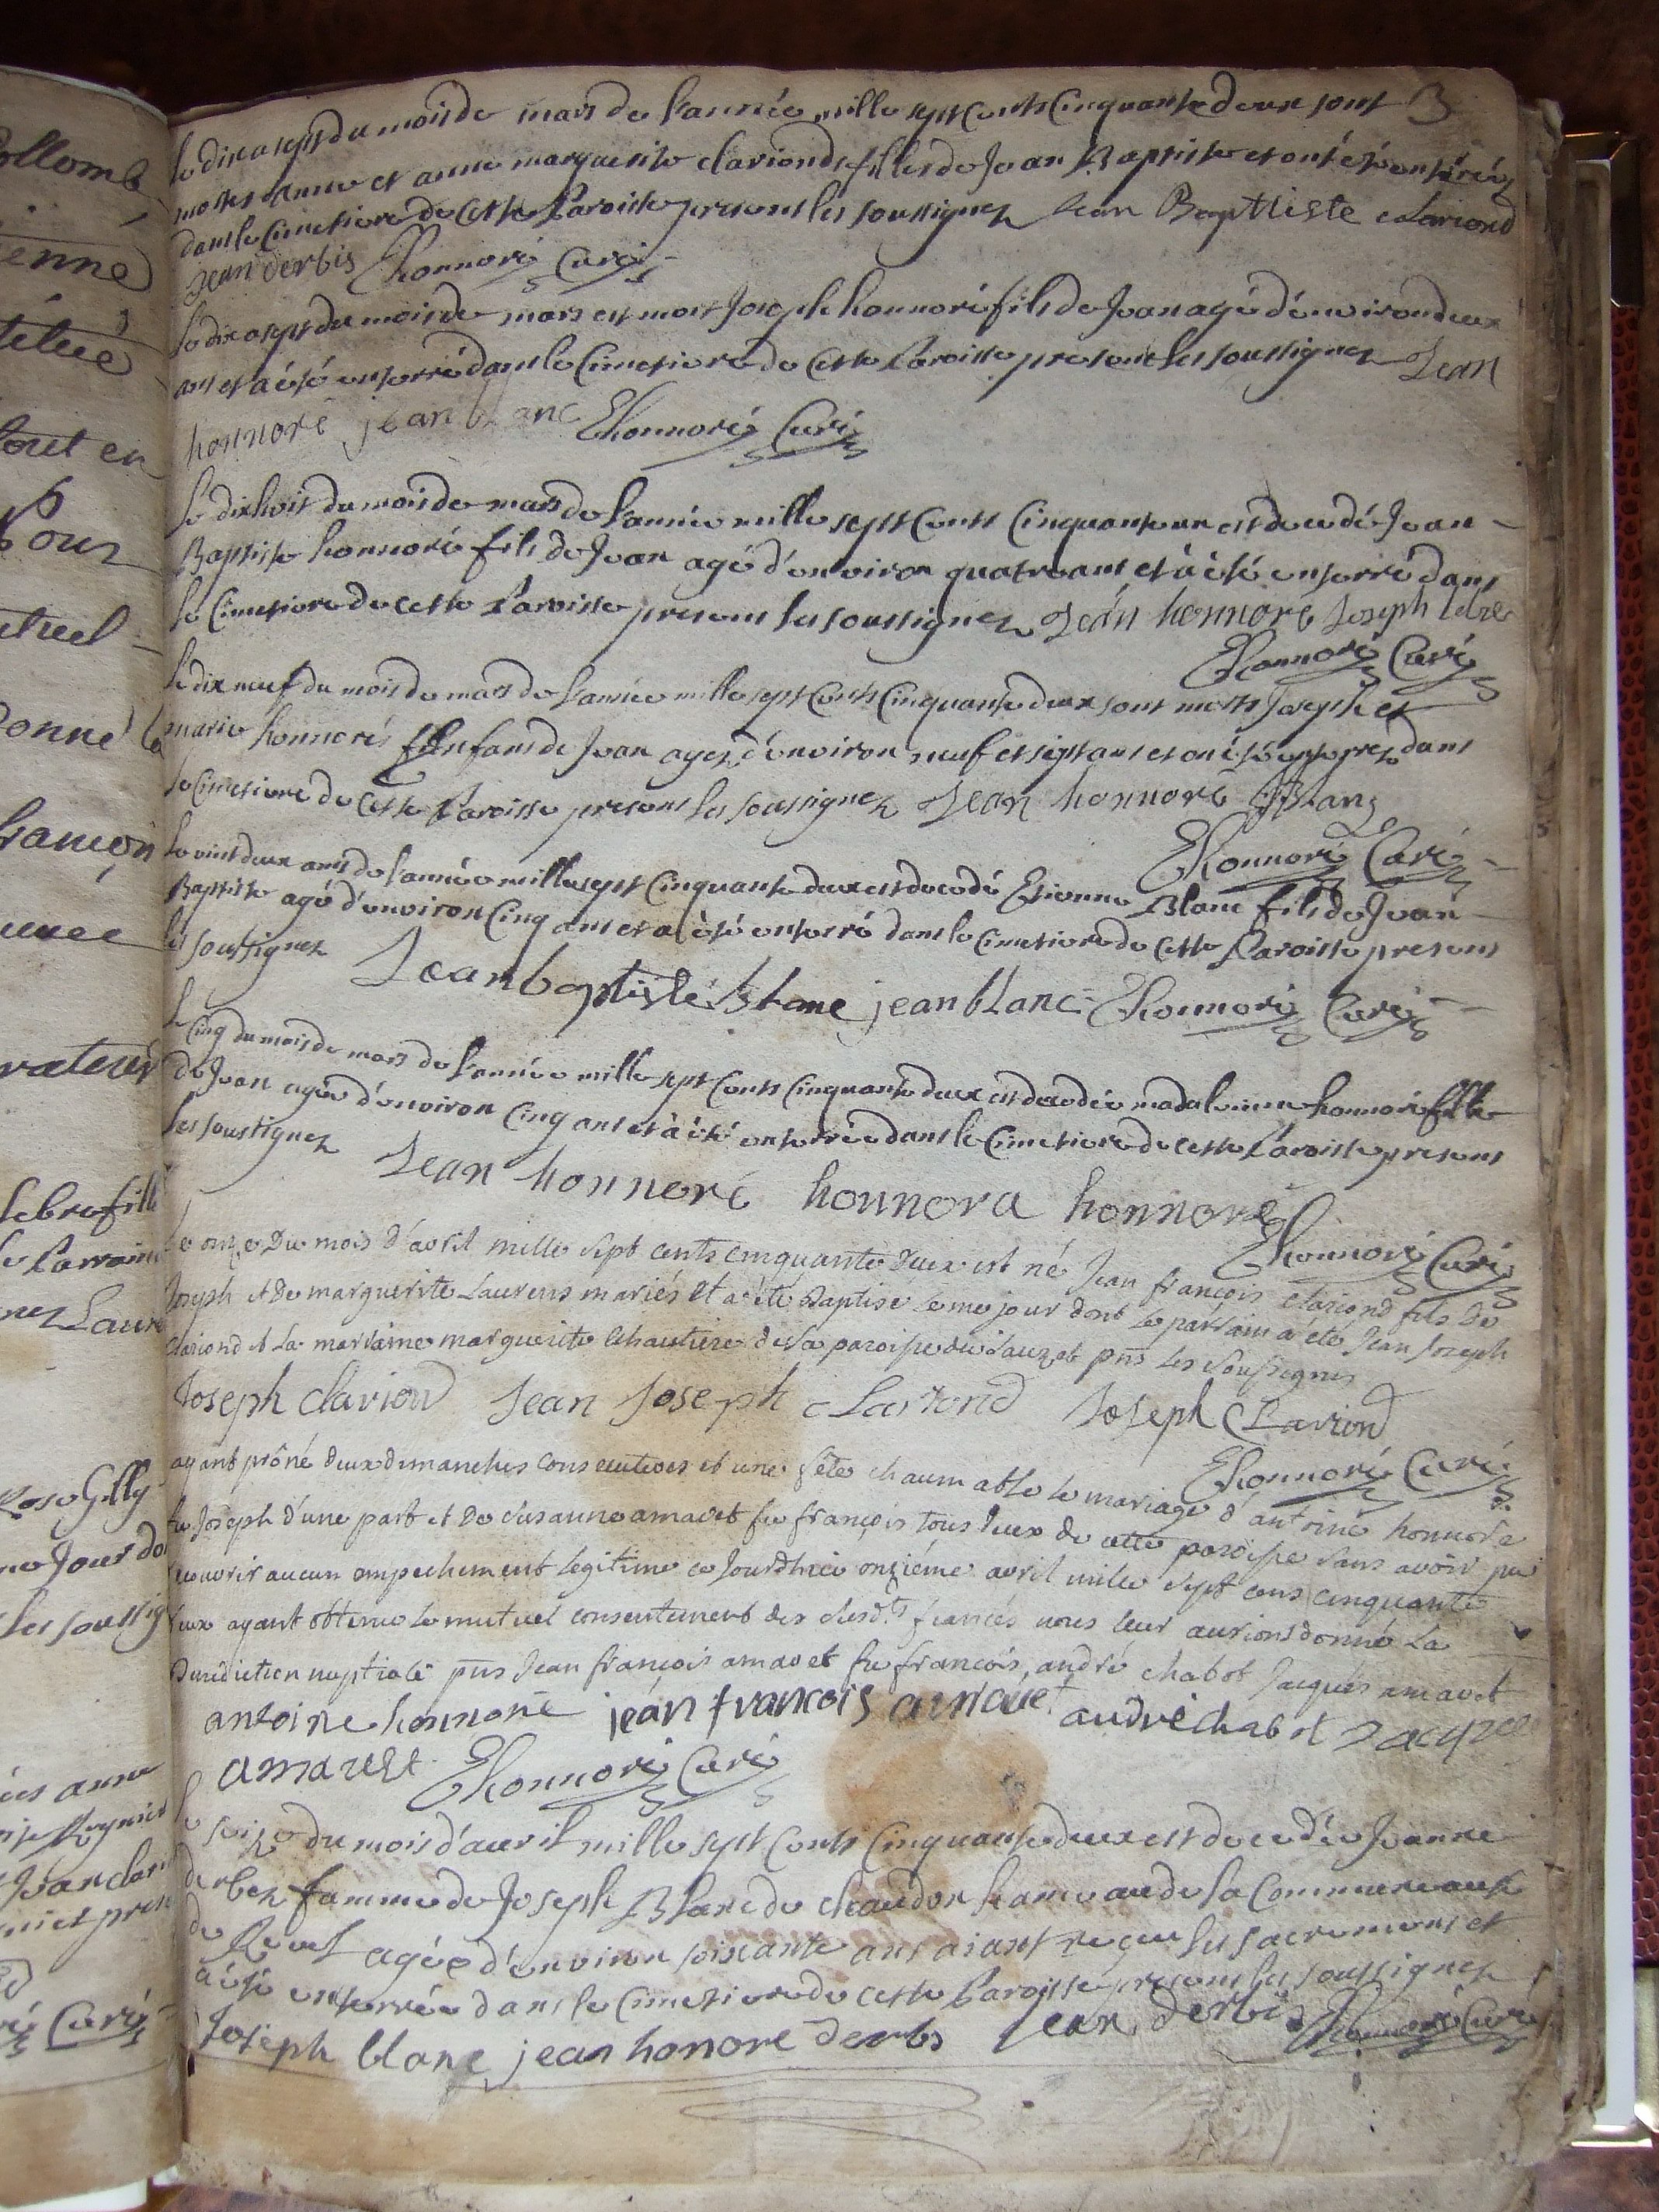 3
le dix a sept du mois de mars de l'année mille sept cents cinquante deux sont
mortes anne et anne marguerite clarionds filles de Jean Baptiste et ont été enterrées
dans le cimetiere de cette Paroisse presens les soussignez Jean Baptiste clariond
Jean derbis Ehonnoré Curé
le dix a sept du mois de mars est mort Joseph honnoré fils de Jean agé d'environ deux
ans et a été enterré dans le Cimetiere de cette Paroisse presens les soussignez Jean
honnoré jean blanc Ehonnoré Curé
le dixhuit du mois de mars de l'année mille sept cents Cinquante un est decedé Jean
Baptiste honnoré fils de Jean agé d'environ quatre ans et à été enterré dans
le Cimetiere de cette Paroisse presens les soussignez Jean honnoré Joseph
Ehonnoré Curé
le dix neuf du mois de mars de l'année mille sept cents Cinquante deux sont morts Joseph et
marie honnorés Enfans de Jean agez d'environ neuf et sept ans et ont été enterrez dans
le Cimetiere de cette Paroisse presens les soussignez Jean honnoré Blanc
Ehonnoré Curé
le vint deux mars de l'année mille sept Cinquante deux est decedé Etienne Blanc fils de Jean
Baptiste agé d'environ Cinq ans et a été enterré dans le cimetiere de cette Paroisse presens
les soussignez Jean baptiste blanc jean blanc Ehonnoré Curé
le Cinq du mois de mars de l'année mille sept cents Cinquante deux est decedée madaleine honnoré fille
de Jean agée d'environ cinq ans et à été enterrée dans le Cimetiere de cette Paroisse presens
les soussignez Jean honnoré honnora honnoré
Ehonnoré Curé
Le onze Du mois d'avril mille sept cents cinquante deux est né Jean françois clariond fils de
Joseph et de marguerite Laurens mariés et a été Baptisé le me jour dont le parrain a été Jean Joseph
Clariond et La marraine marguerite de la paroisse du Lauzet pns les soussignés
Joseph clariond Jean Joseph clariond Joseph Clariond
Ehonnoré Curé
ayant prôné deux dimanches consecutives et une fête chaumable le mariage d'antoine honnoré de
feu Joseph d'une part et de susanne amavet feu françois tous deux de cette paroisse sans avoir pu
decouvrir aucun empechement legitime ce Jourdhui onziéme avril mille sept cens cinquante
deux ayant obtenu le mutuel consentement des susd.ts fiancés nous leur aurions donné La
Benediction nuptiale pns Jean françois amavet feu francois, andré chabot Jacques amavet
antoine honnoré jean francois amavet andré chabot Jacque
amavet Ehonnoré Curé
le seize du mois d'avril mille sept cents Cinquante deux est decedée Jeanne
derbez famme de Joseph Blanc de chaudon hameau de la Communauté
de Revel agée d'environ soixante ans aiant reçeu les sacremens et
a été enterrée dans le Cimetiere de cette Paroisse presens les soussignez
Joseph blanc jean honoré derbs Jean derbis Ehonnoré Curé